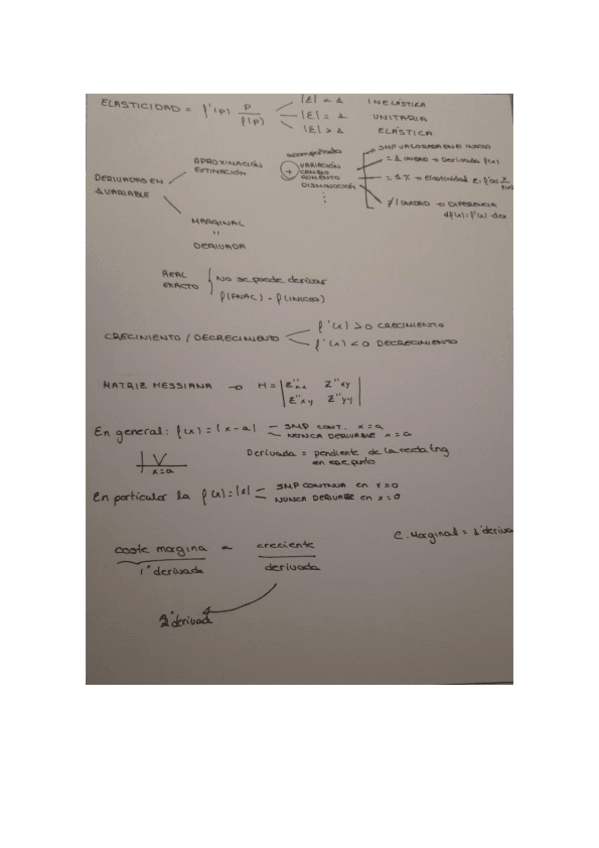 ELASTICIDAD = f'(p) p / f(p)
|ε| < 1 INELÁSTICA
|ε| = 1 UNITARIA
|ε| > 1 ELÁSTICA
DERIVADAS EN 1 VARIABLE
APROXIMACIÓN
ESTIMACIÓN
+
acompañado
VARIACIÓN
CAMBIO
AUMENTO
DISMINUCIÓN
⋮
SMP VALORADA EN EL INICIO
= 1 UNIDAD → Derivada f'(x)
= 1% → Elasticidad
≠ 1 UNIDAD → DIFERENCIA
df(x) = f'(x) · dx
MARGINAL
"
DERIVADA
REAL
EXACTO
No se puede derivar
f(FINAL) - f(INICIO)
CRECIMIENTO / DECRECIMIENTO
f'(x) > 0 CRECIMIENTO
f'(x) < 0 DECRECIMIENTO
MATRIZ HESSIANA → H = | Z''xx Z''xy
Z''xy Z''yy |
En general: f(x) = |x-a|
SMP CONT. x=a
NUNCA DERIVABLE x=a
x=a
Derivada = pendiente de la recta tng
en ese punto
En particular la f(x) = |x|
SMP CONTINUA en x=0
NUNCA DERIVABLE en x=0
C. Marginal = 1ª deriva
coste margina a creciente
1ª derivada derivada
2ª derivada